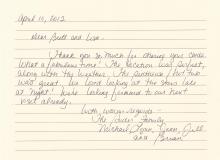 April 10, 2012
Dear Brett and Lisa -
Thank you so much for sharing your condo.
What a fabulous time! The location was perfect,
along with the weather. The
was great. We loved looking at the stars
at night! We're looking forward to our next
visit already.
With warm regards -
The Family
Michael, Ryan, Jill
and Brian